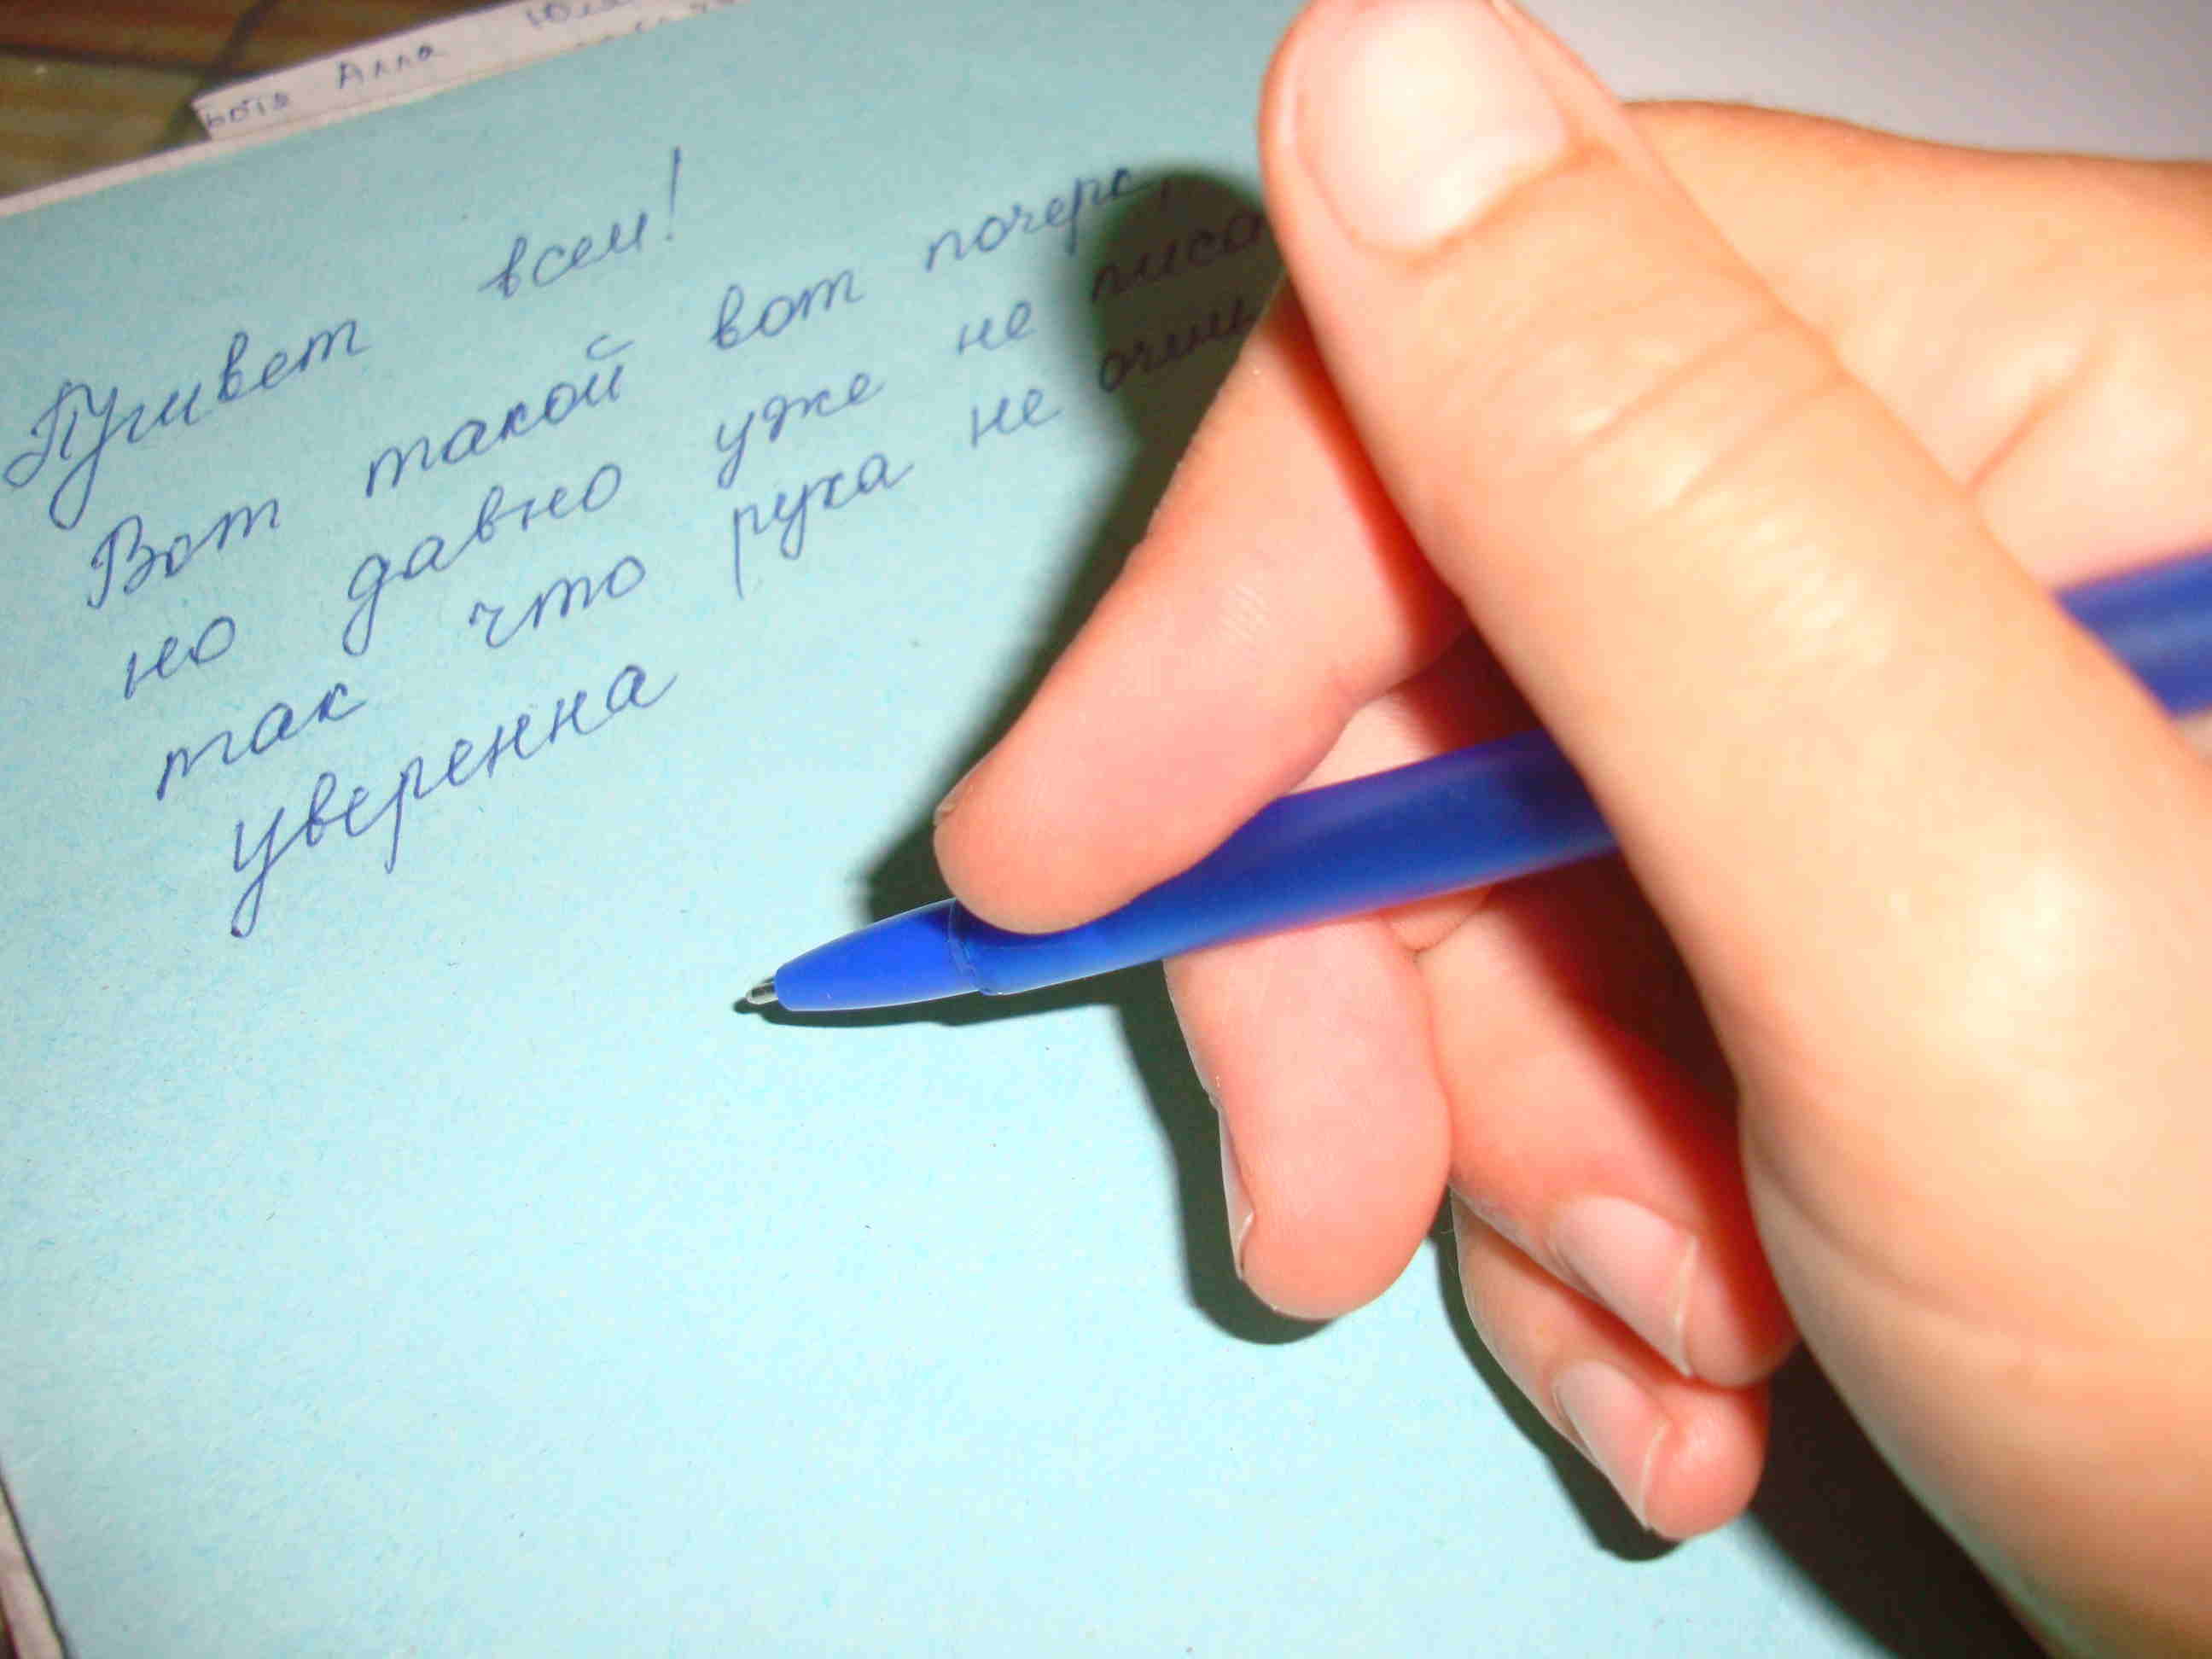 Алла
Привет всем!
Вот такой вот почерк,
но давно уже не писа
так что рука не очень
уверенна